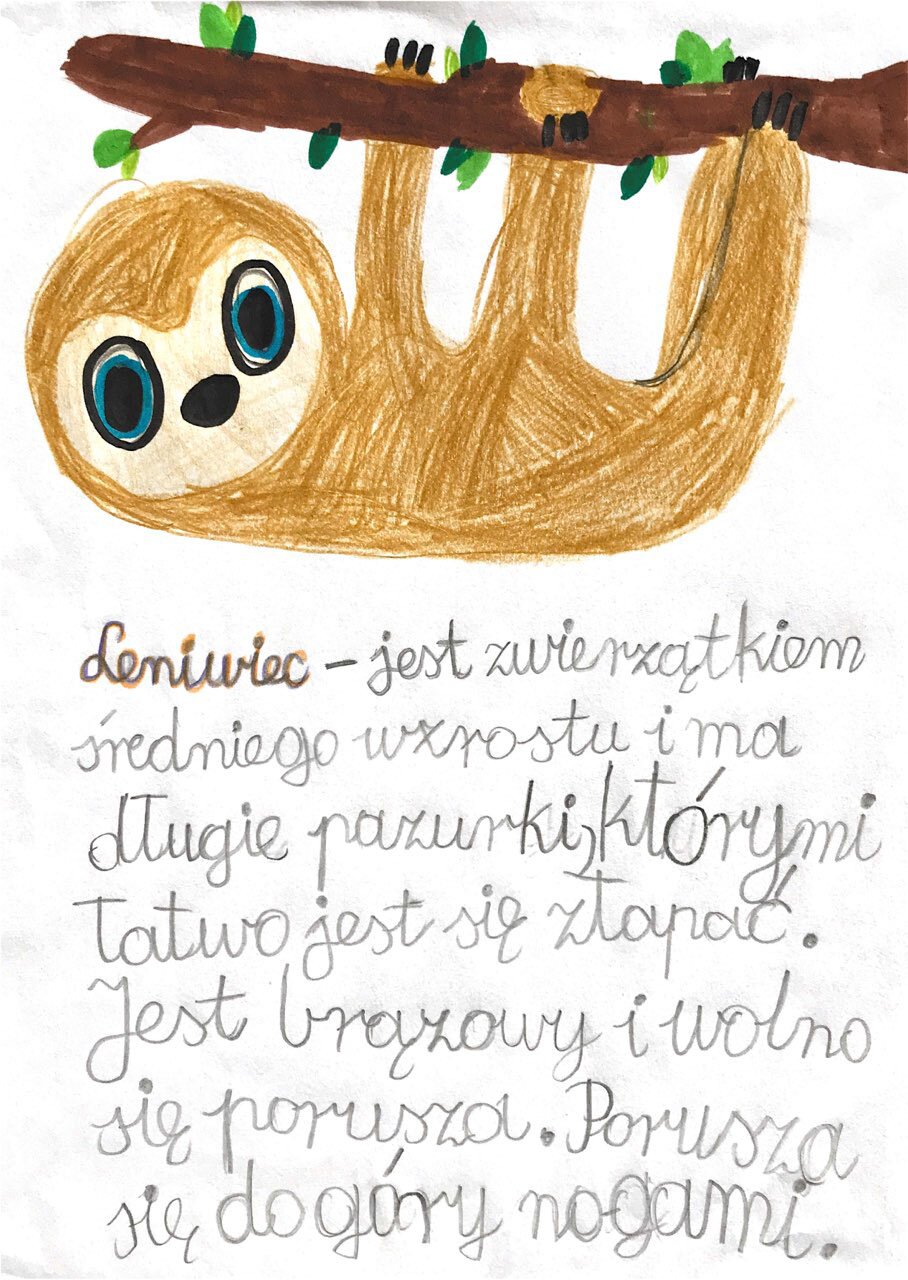 Leniwiec – jest zwierzątkiem
średniego wzrostu i ma
długie pazurki, którymi
łatwo jest się złapać.
Jest brązowy i wolno
się porusza. Porusza
się do góry nogami.